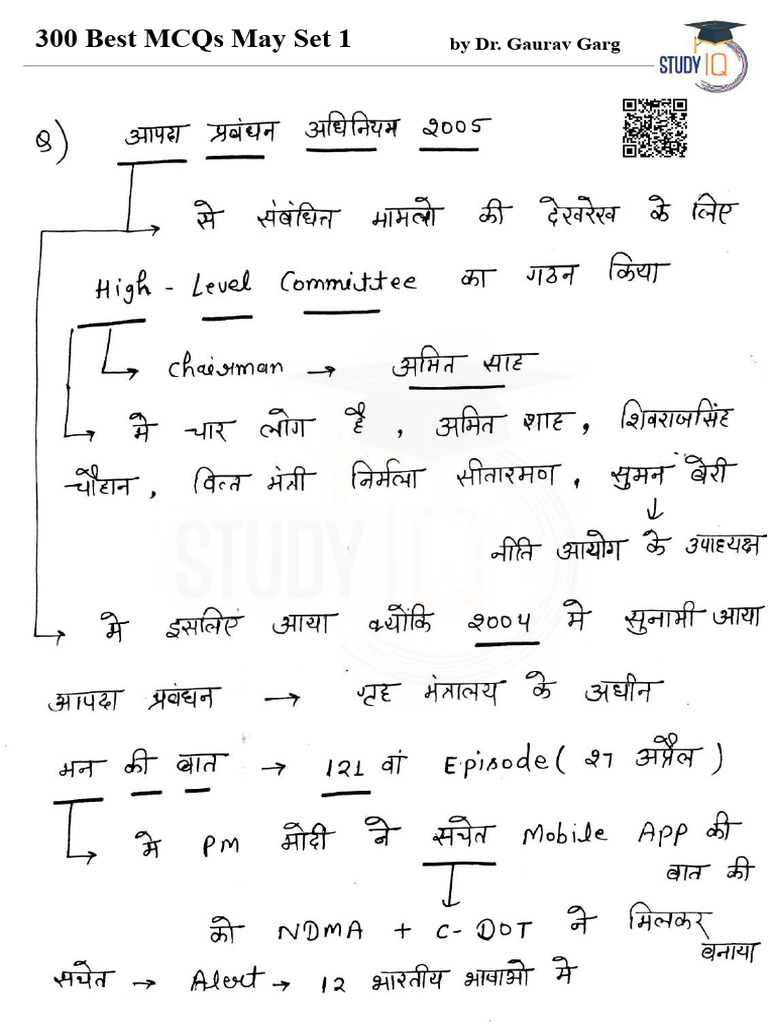 300 Best MCQs May Set 1
by Dr. Gaurav Garg
STUDY IQ
Q) आपदा प्रबंधन अधिनियम 2005
से संबंधित मामलो की देखरेख के लिए
High - Level Committee का गठन किया
Chairman → अमित साह
मे चार लोग है , अमित शाह , शिवराजसिंह
चौहान , वित्त मंत्री निर्मला सीतारमण , सुमन बेरी
नीति आयोग के उपाध्यक्ष
मे इसलिए आया क्योंकि 2004 मे सुनामी आया
आपदा प्रबंधन → गृह मंत्रालय के अधीन
मन की बात → 121 वां Episode ( 27 अप्रैल )
मे PM मोदी ने सचेत Mobile APP की
बात की
को NDMA + C-DOT ने मिलकर
बनाया
सचेत → Alert → 12 भारतीय भाषाओ मे
STUDY IQ